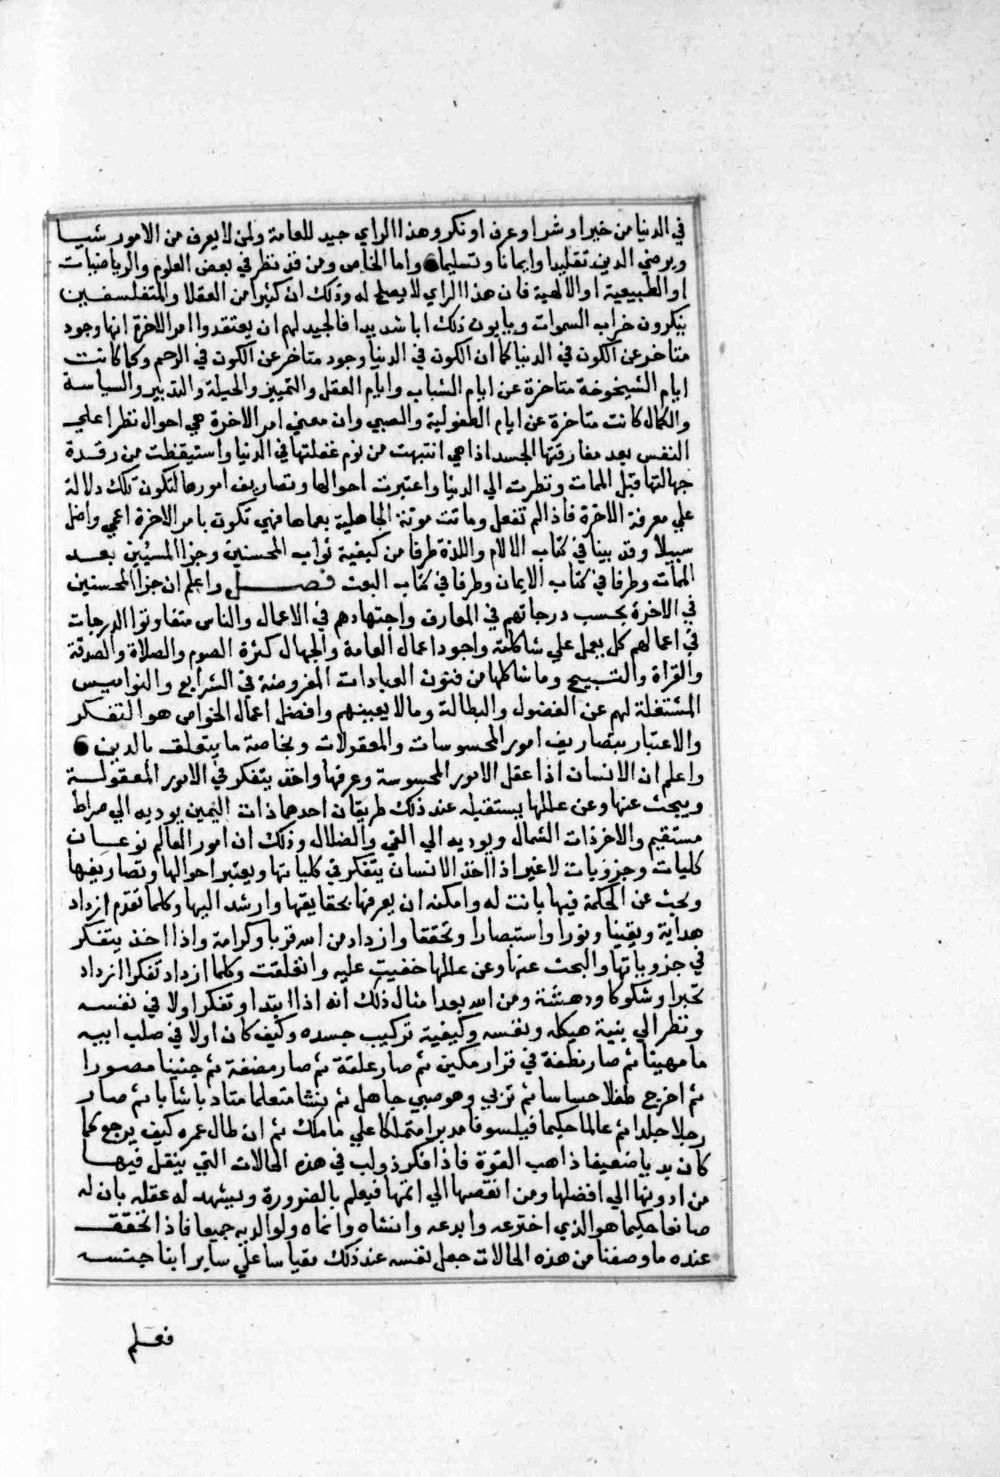 في الدنيا من خير او شر او عرف او نكر وهذا الراي جيد للعامة ولمن لا يعرف من الامور شيا
ويرضي الدين تقليدا وايمانا وتسليما واما الخاص ومن قد نظر في بعض العلوم والرياضيات
او الطبيعية او الالهية فان هذا الراي لا يصلح له وذلك ان كثيرا من العقلا والمتفلسفين
ينكرون خراب السموات ويابون ذلك ابا شديدا فالجيد لهم ان يعتقدوا امر الاخرة انها وجود
متاخر عن الكون في الدنيا كما ان الكون في الدنيا وجود متاخر عن الكون في الرحم وكما كانت
ايام الشيخوخة متاخرة عن ايام الشباب وايام العقل والتمييز والحيلة والتدبير والسياسة
والكمال كانت متاخرة عن ايام الطفولية والصبي وان معني امر الاخرة هي احوال نظرا علي
النفس بعد مفارقتها الجسد اذا هي انتبهت من نوم غفلتها في الدنيا واستيقظت من رقدة
جهالتها قبل الممات ونظرت الي الدنيا واعتبرت احوالها وتصاريف امورها لتكون تلك دلالة
علي معرفة الاخرة فاذا لم تفعل وماتت موتة الجاهلية بعماها فهي تكون بامر الاخرة اعمي واضل
سبيلا وقد بينا في كتاب الالام واللذة طرفا من كيفية ثواب المحسنين وجزا المسيين بعد
الممات وطرفا في كتاب الايمان وطرفا في كتاب البعث فصل واعلم ان جزا المحسنين
في الاخرة بحسب درجاتهم في المعارف واجتهادهم في الاعمال والناس متفاوتوا الدرجات
في اعمالهم كل يعمل علي شاكلته واجود اعمال العامة والجهال كثرة الصوم والصلاة والصدقة
والقراة والتسبيح وما شاكلها من فنون العبادات المفروضة في الشرايع والنواميس
المشتغلة لهم عن الفضول والبطالة وما لا يعنيهم وافضل اعمال الخواص هو التفكر
والاعتبار بتصاريف امور المحسوسات والمعقولات وبخاصة ما يتعلق بالدين
واعلم ان الانسان اذا عقل الامور المحسوسة وعرفها واخذ يتفكر في الامور المعقولة
ويبحث عنها وعن عللها يستقبله عند ذلك طريقان احدهما ذات اليمين يوديه الي صراط
مستقيم والاخر ذات الشمال ويوديه الي التي والضلال وذلك ان امور العالم نوعان
كليات وجزويات لا غير اذا اخذ الانسان يتفكر في كلياتها ويعتبر احوالها وتصاريفها
وبحث عن الحكمة فيها بانت له وامكنه ان يعرفها بحقايقها وارشد اليها وكلما تقدم ازداد
هداية ويقينا ونورا واستبصارا وتحققا وازداد من الله قربا وكرامة واذا اخذ يتفكر
في جزوياتها والبحث عنها وعن عللها خفيت عليه وانغلقت وكلما ازداد تفكرا ازداد
تحيرا وشكوكا ودهشة ومن الله بعدا مثال ذلك انه اذا ابتدا وتفكر اولا في نفسه
ونظر الي بنية هيكله ونفسه وكيفية تركيب جسده وكيف كان اولا في صلب ابيه
ما مهينا ثم صار نطفة في قرار مكين ثم صار علقة ثم صار مضغة ثم جنينا مصورا
ثم اخرج طفلا حساسا ثم تربي وهو صبي جاهل ثم ينشا متعلما متادبا شابا ثم صار
رجلا جلدا ثم عالما حكيما فيلسوفا مدبرا متملكا علي ما ملك ثم ان طال عمره كيف يرجع كما
كان بديا ضعيفا ذاهب القوة فاذا فكر ذو لب في هذه الحالات التي ينقل فيها
من ادونها الي افضلها ومن انقصها الي اتمها فيعلم بالضرورة ويشهد له عقله بان له
صانعا حكيما هو الذي اخترعه وابدعه وانشاه وانماه ولوالديه جميعا فاذا تحقق
عنده ما وصفنا من هذه الحالات جعل نفسه عند ذلك مقياسا علي ساير ابنا جنسه
فعلم